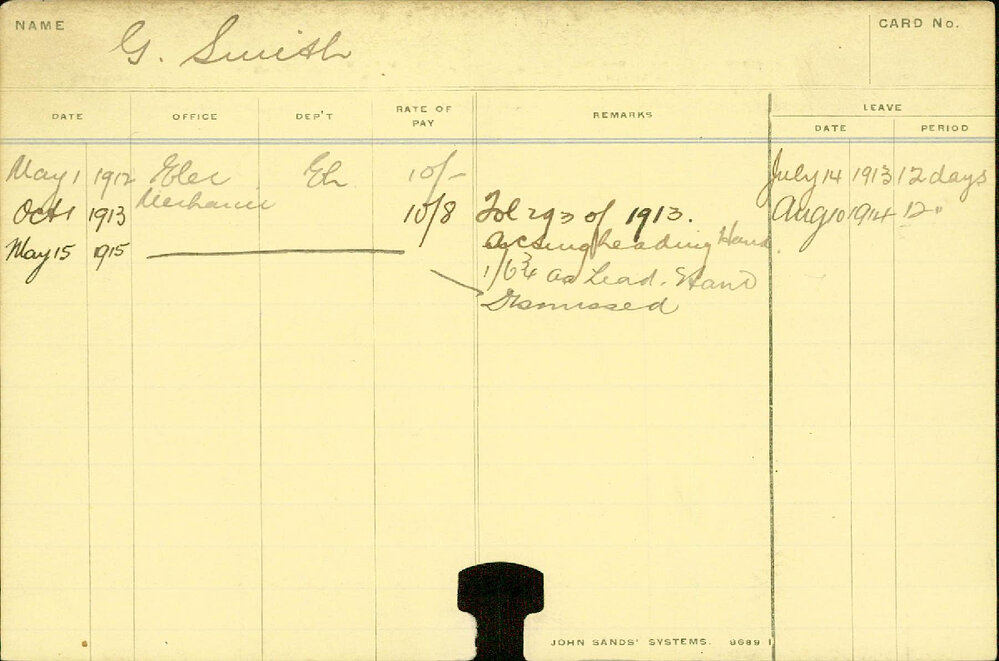 NAME G. Smith CARD No.
DATE OFFICE DEP'T RATE OF PAY REMARKS LEAVE
DATE PERIOD
May 1 1912 Elec El. 10/- July 14 1913 12 days
Oct 1 1913 Mechanic 10/8 Fol 293 of 1913. Aug 10 1914 12 "
May 15 1915 Acting Leading Hand
1/6¾ as Lead. Hand
Dismissed
JOHN SANDS' SYSTEMS. 8689 1